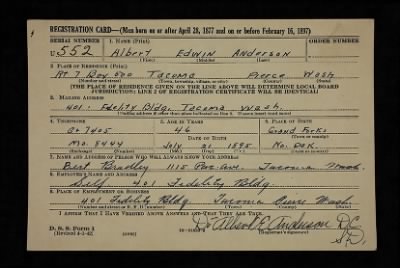 REGISTRATION CARD—(Men born on or after April 28, 1877 and on or before February 16, 1897)
SERIAL NUMBER 1. NAME (Print) ORDER NUMBER
U 552 Albert Edwin Anderson
(First) (Middle) (Last)
2. PLACE OF RESIDENCE (Print)
Rt 7 Box 500 Tacoma Pierce Wash
(Number and street) (Town, township, village, or city) (County) (State)
[THE PLACE OF RESIDENCE GIVEN ON THE LINE ABOVE WILL DETERMINE LOCAL BOARD
JURISDICTION; LINE 2 OF REGISTRATION CERTIFICATE WILL BE IDENTICAL]
3. MAILING ADDRESS
401 Fidelity Bldg. Tacoma Wash.
(Mailing address if other than place indicated on line 2. If same insert word same)
4. TELEPHONE 5. AGE IN YEARS 6. PLACE OF BIRTH
Gr 7405 46 Grand Forks
DATE OF BIRTH (Town or county)
Ma. 8444 July 21 1895 No. Dak.
(Exchange) (Number) (Mo.) (Day) (Yr.) (State or country)
7. NAME AND ADDRESS OF PERSON WHO WILL ALWAYS KNOW YOUR ADDRESS
Bert Bradley 1115 Pac. Ave. Tacoma Wash.
8. EMPLOYER'S NAME AND ADDRESS
Self 401 Fidelity Bldg.
9. PLACE OF EMPLOYMENT OR BUSINESS
401 Fidelity Bldg Tacoma Pierce Wash.
(Number and street or R. F. D. number) (Town) (County) (State)
I AFFIRM THAT I HAVE VERIFIED ABOVE ANSWERS AND THAT THEY ARE TRUE.
D. S. S. Form 1
(Revised 4-1-42) (over)
Dr Albert E. Anderson D.C.
(Registrant's signature)